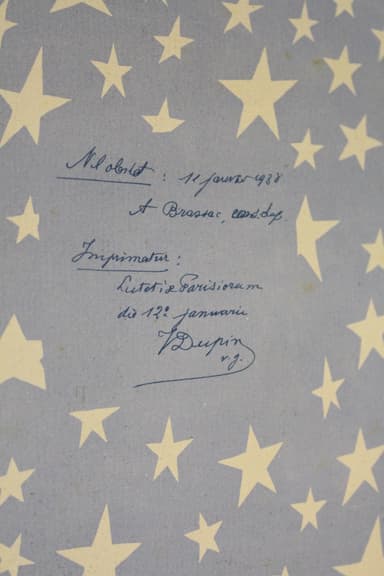 Nil obstat : 11 janvier 1938
A Brassac, cens. dep.
Imprimatur :
Lutetiæ Parisiorum
die 12ª januarii
V Dupin
v. g.